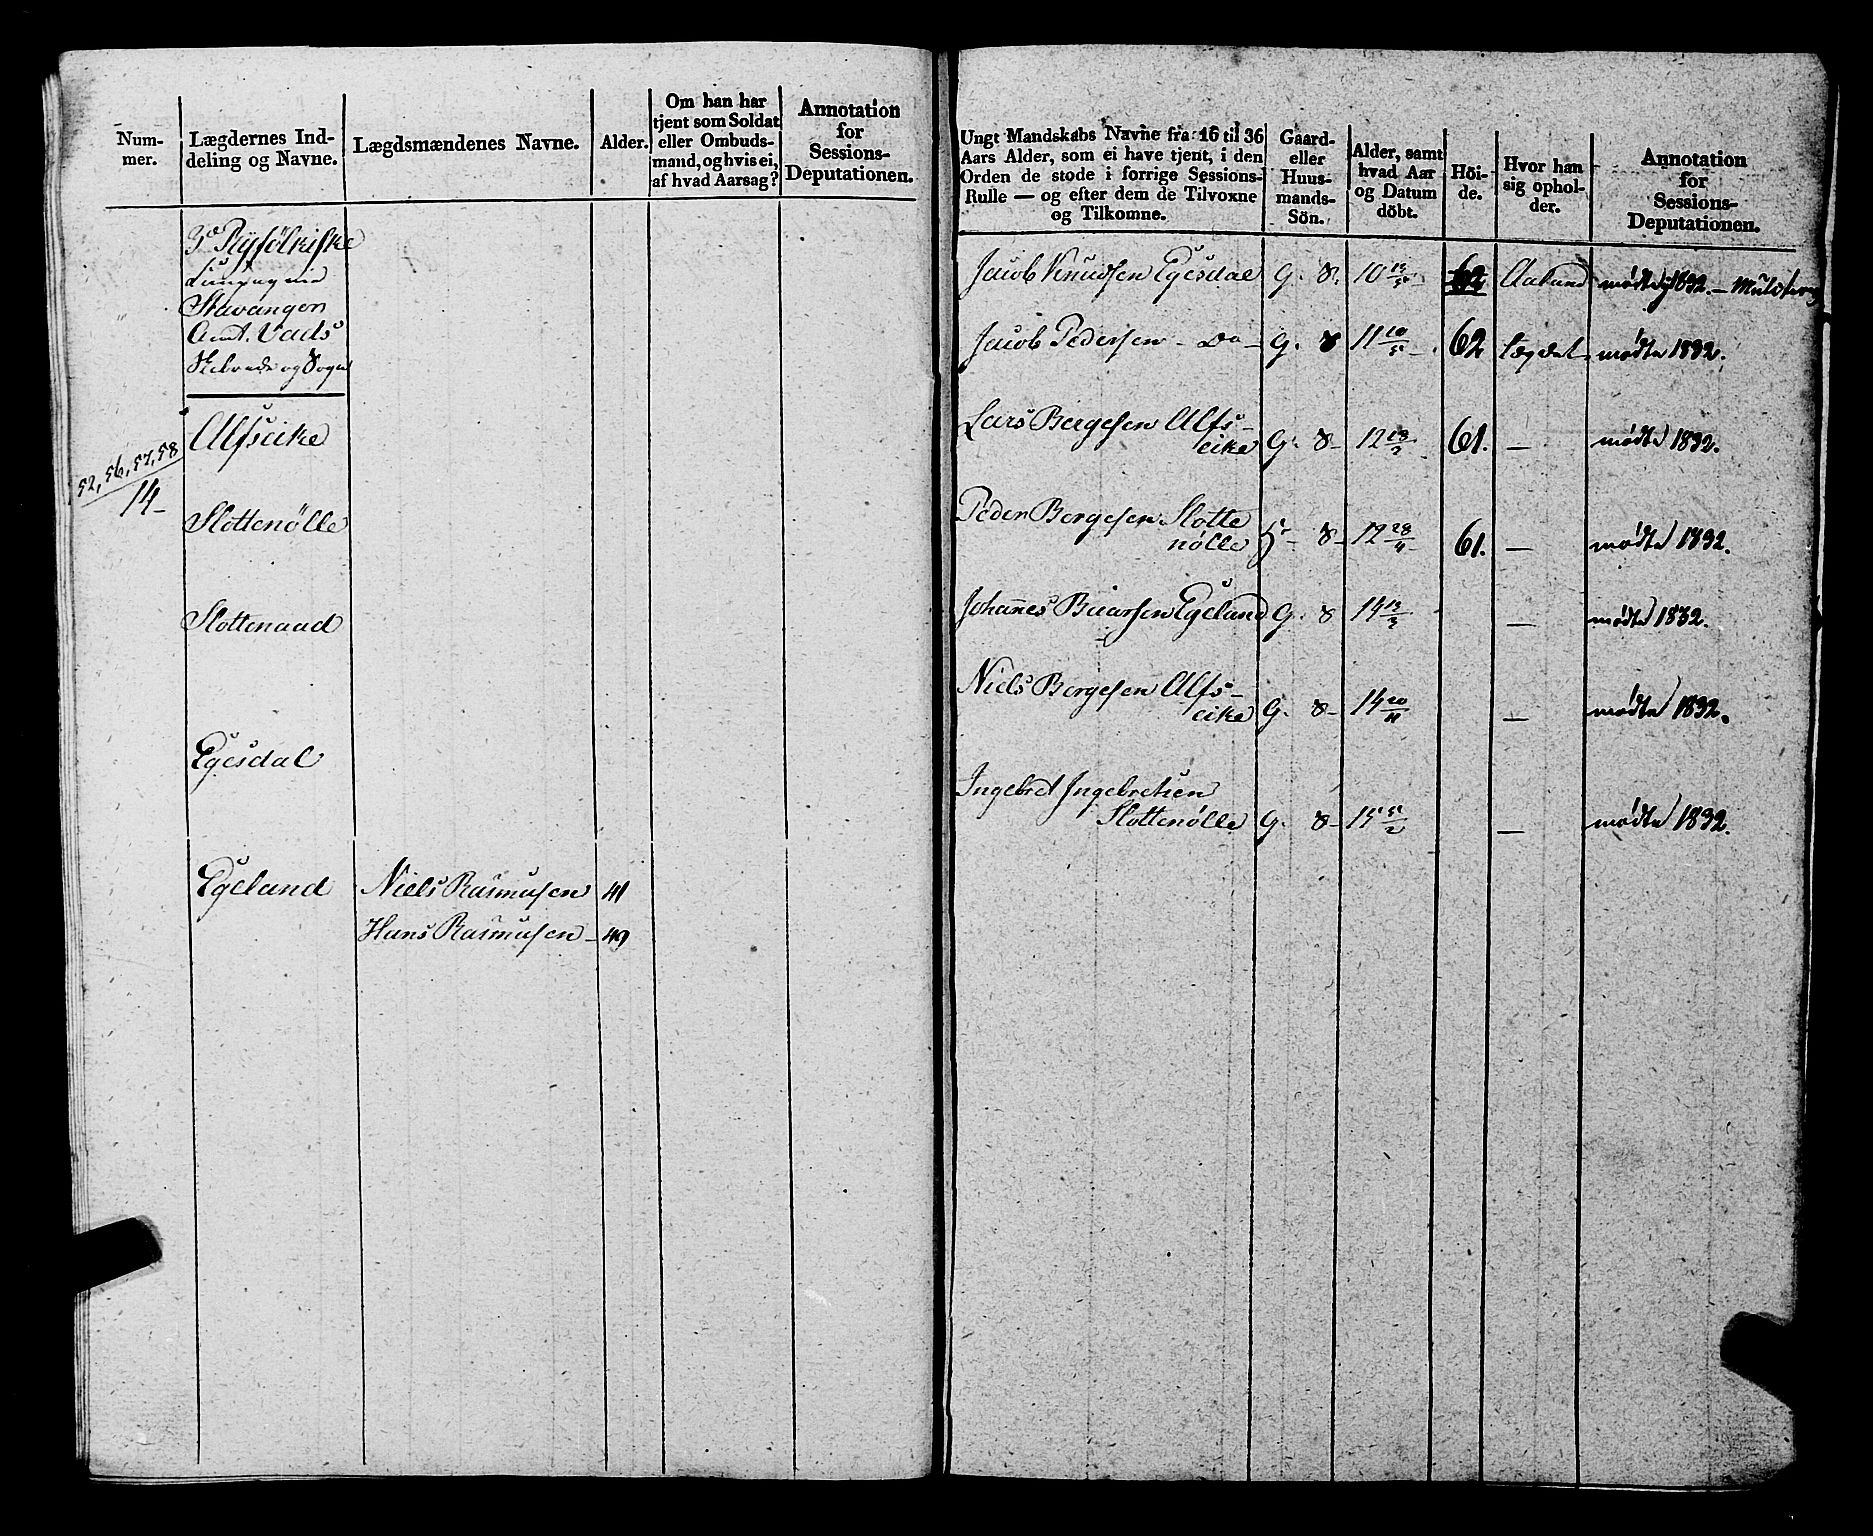 Num-
mer.
Lægdernes Ind-
deling og Navne.
Lægdsmændenes Navne.
Alder.
Om han har
tjent som Soldat
eller Ombuds-
mand, og hvis ei,
af hvad Aarsag?
Annotation
for
Sessions-
Deputationen.
Ryfølkiske
Compagnie
Stavanger
Amt. Vads
Skibrede og Sogn
Alfseike
52, 56, 57, 58
14-
Slottenølle
Slottenaad
Egesdal
Egeland Niels Rasmusen 41
Hans Rasmusen - 49
Ungt Mandskabs Navne fra 16 til 36
Aars Alder, som ei have tjent, i den
Orden de stode i forrige Sessions-
Rulle — og efter dem de Tilvoxne
og Tilkomne.
Gaard-
eller
Huus-
mands-
Sön.
Alder, samt
hvad Aar
og Datum
döbt.
Höi-
de.
Hvor han
sig ophol-
der.
Annotation
for
Sessions-
Deputationen.
Jacob Knudsen Egesdal G. S. 10 62 mødte 1832.
Jacob Pedersen - Do - G. S 11 10/5 - 62 Lægdet mødte 1832.
Lars Bergesen Alfs-
eike G. S- 12 61. — mødte 1832.
Peder Bergesen Slotte
nølle S- 12 28/4 61. — mødte 1832.
Johannes Egeland G. S 14 — mødte 1832.
Niels Bergesen Alfs-
eike G. S- 14 20/11 — mødte 1832.
Ingebret Ingebretsen
Slottenølle G. S- 15 5/2 — mødte 1832.